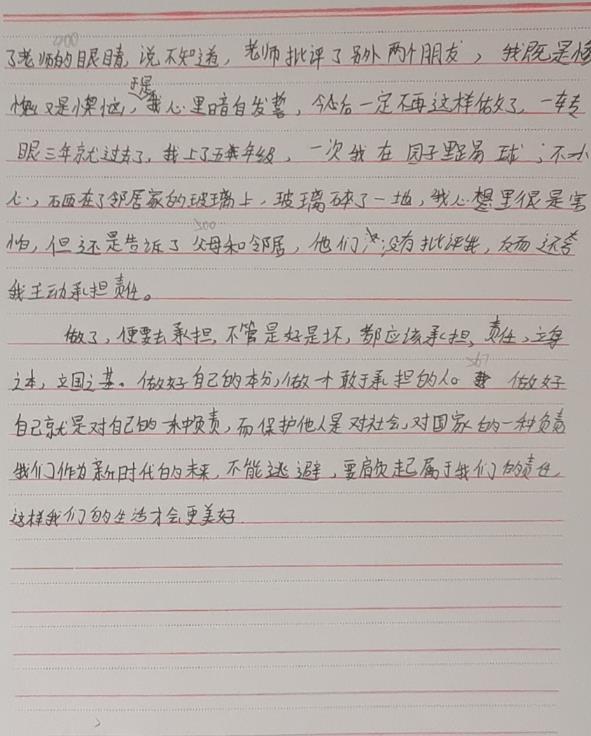 了老师的眼睛，说不知道，老师批评了另外两个朋友，我既是懊
悔又是懊恼，于是我心里暗自发誓，今后一定不再这样做了，一转
眼三年就过去了，我上了五年级，一次我在园子里踢球，不小
心，砸在了邻居家的玻璃上，玻璃碎了一地，我心里很是害
怕，但还是告诉了父母和邻居，他们没有批评我，反而还夸
我主动承担责任。
做了，便要去承担，不管是好是坏，都应该承担，责任，立身
之本，立国之基。做好自己的本分，做一个敢于承担的人。做好
自己就是对自己的一种负责，而保护他人是对社会，对国家的一种负责
我们作为新时代的未来，不能逃避，要肩负起属于我们的责任，
这样我们的生活才会更美好